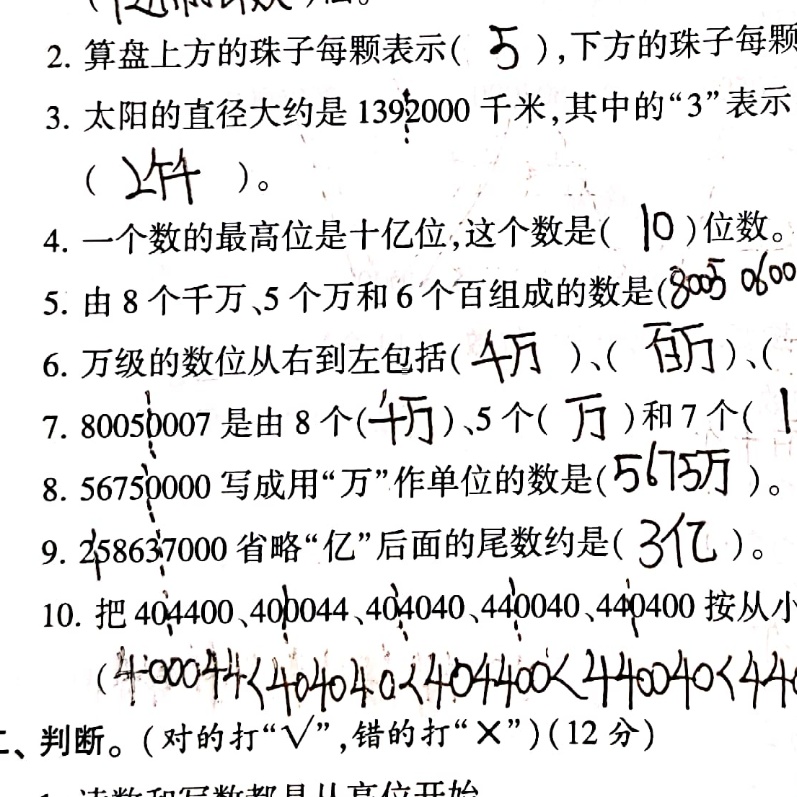 2. 算盘上方的珠子每颗表示( 5 ),下方的珠子每颗
3. 太阳的直径大约是 1392000 千米,其中的“3”表示
( )。
4. 一个数的最高位是十亿位,这个数是( 10 )位数。
5. 由 8 个千万、5 个万和 6 个百组成的数是(8005 0600
6. 万级的数位从右到左包括( 十万 )、( 百万 )、(
7. 80050007 是由 8 个(千万)、5 个( 万 )和 7 个( 1
8. 56750000 写成用“万”作单位的数是(5675万 )。
9. 258637000 省略“亿”后面的尾数约是( 3亿 )。
10. 把 404400、400044、404040、440040、440400 按从小
(400044<404040<404400<440040<44
二、判断。(对的打“√”,错的打“×”)(12 分)